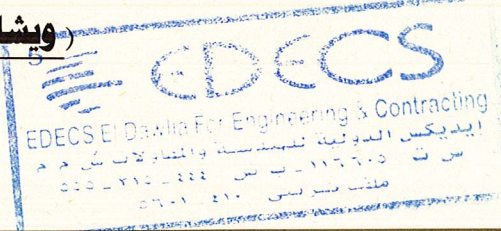 ( ويشا
5
EDECS
EDECS El Dawlia For Engineering & Contracting
ايديكس الدولية للهندسة والمقاولات ش م م
س ت ١١٦٦٠٥ - ب ض
ملف ضريبى